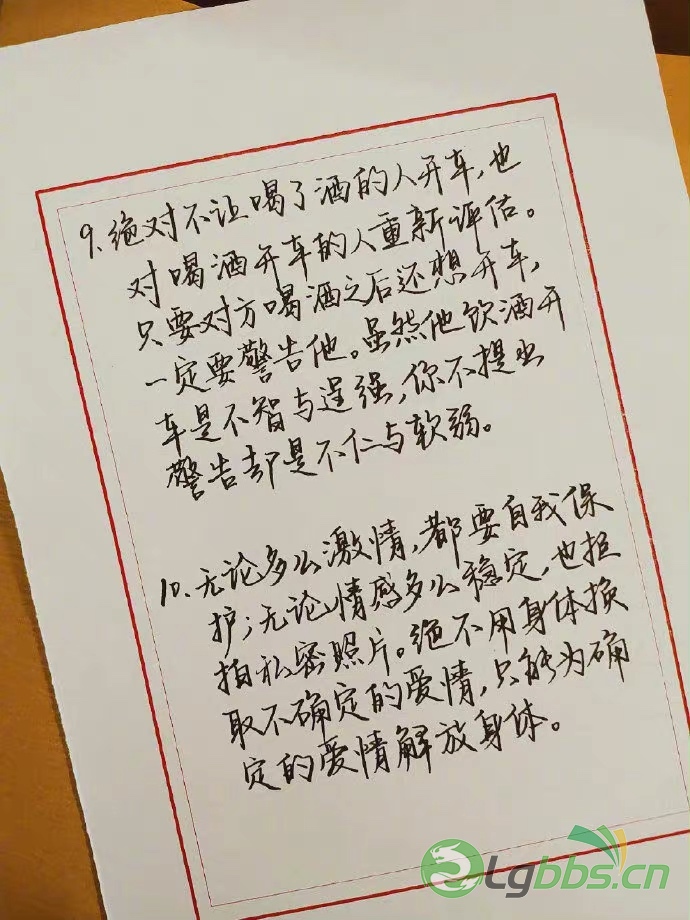 9.绝对不让喝了酒的人开车,也
对喝酒开车的人重新评估。
只要对方喝酒之后还想开车,
一定要警告他。虽然他饮酒开
车是不智与逞强,你不提出
警告却是不仁与软弱。
10.无论多么激情,都要自我保
护;无论情感多么稳定,也拒
拍私密照片。绝不用身体换
取不确定的爱情,只能为确
定的爱情解放身体。
Lgbbs.cn